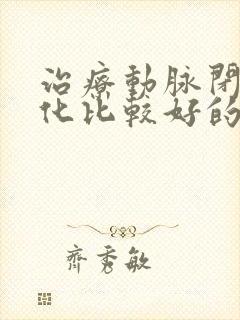 治療動脉閉
化比較好的
齊秀敏